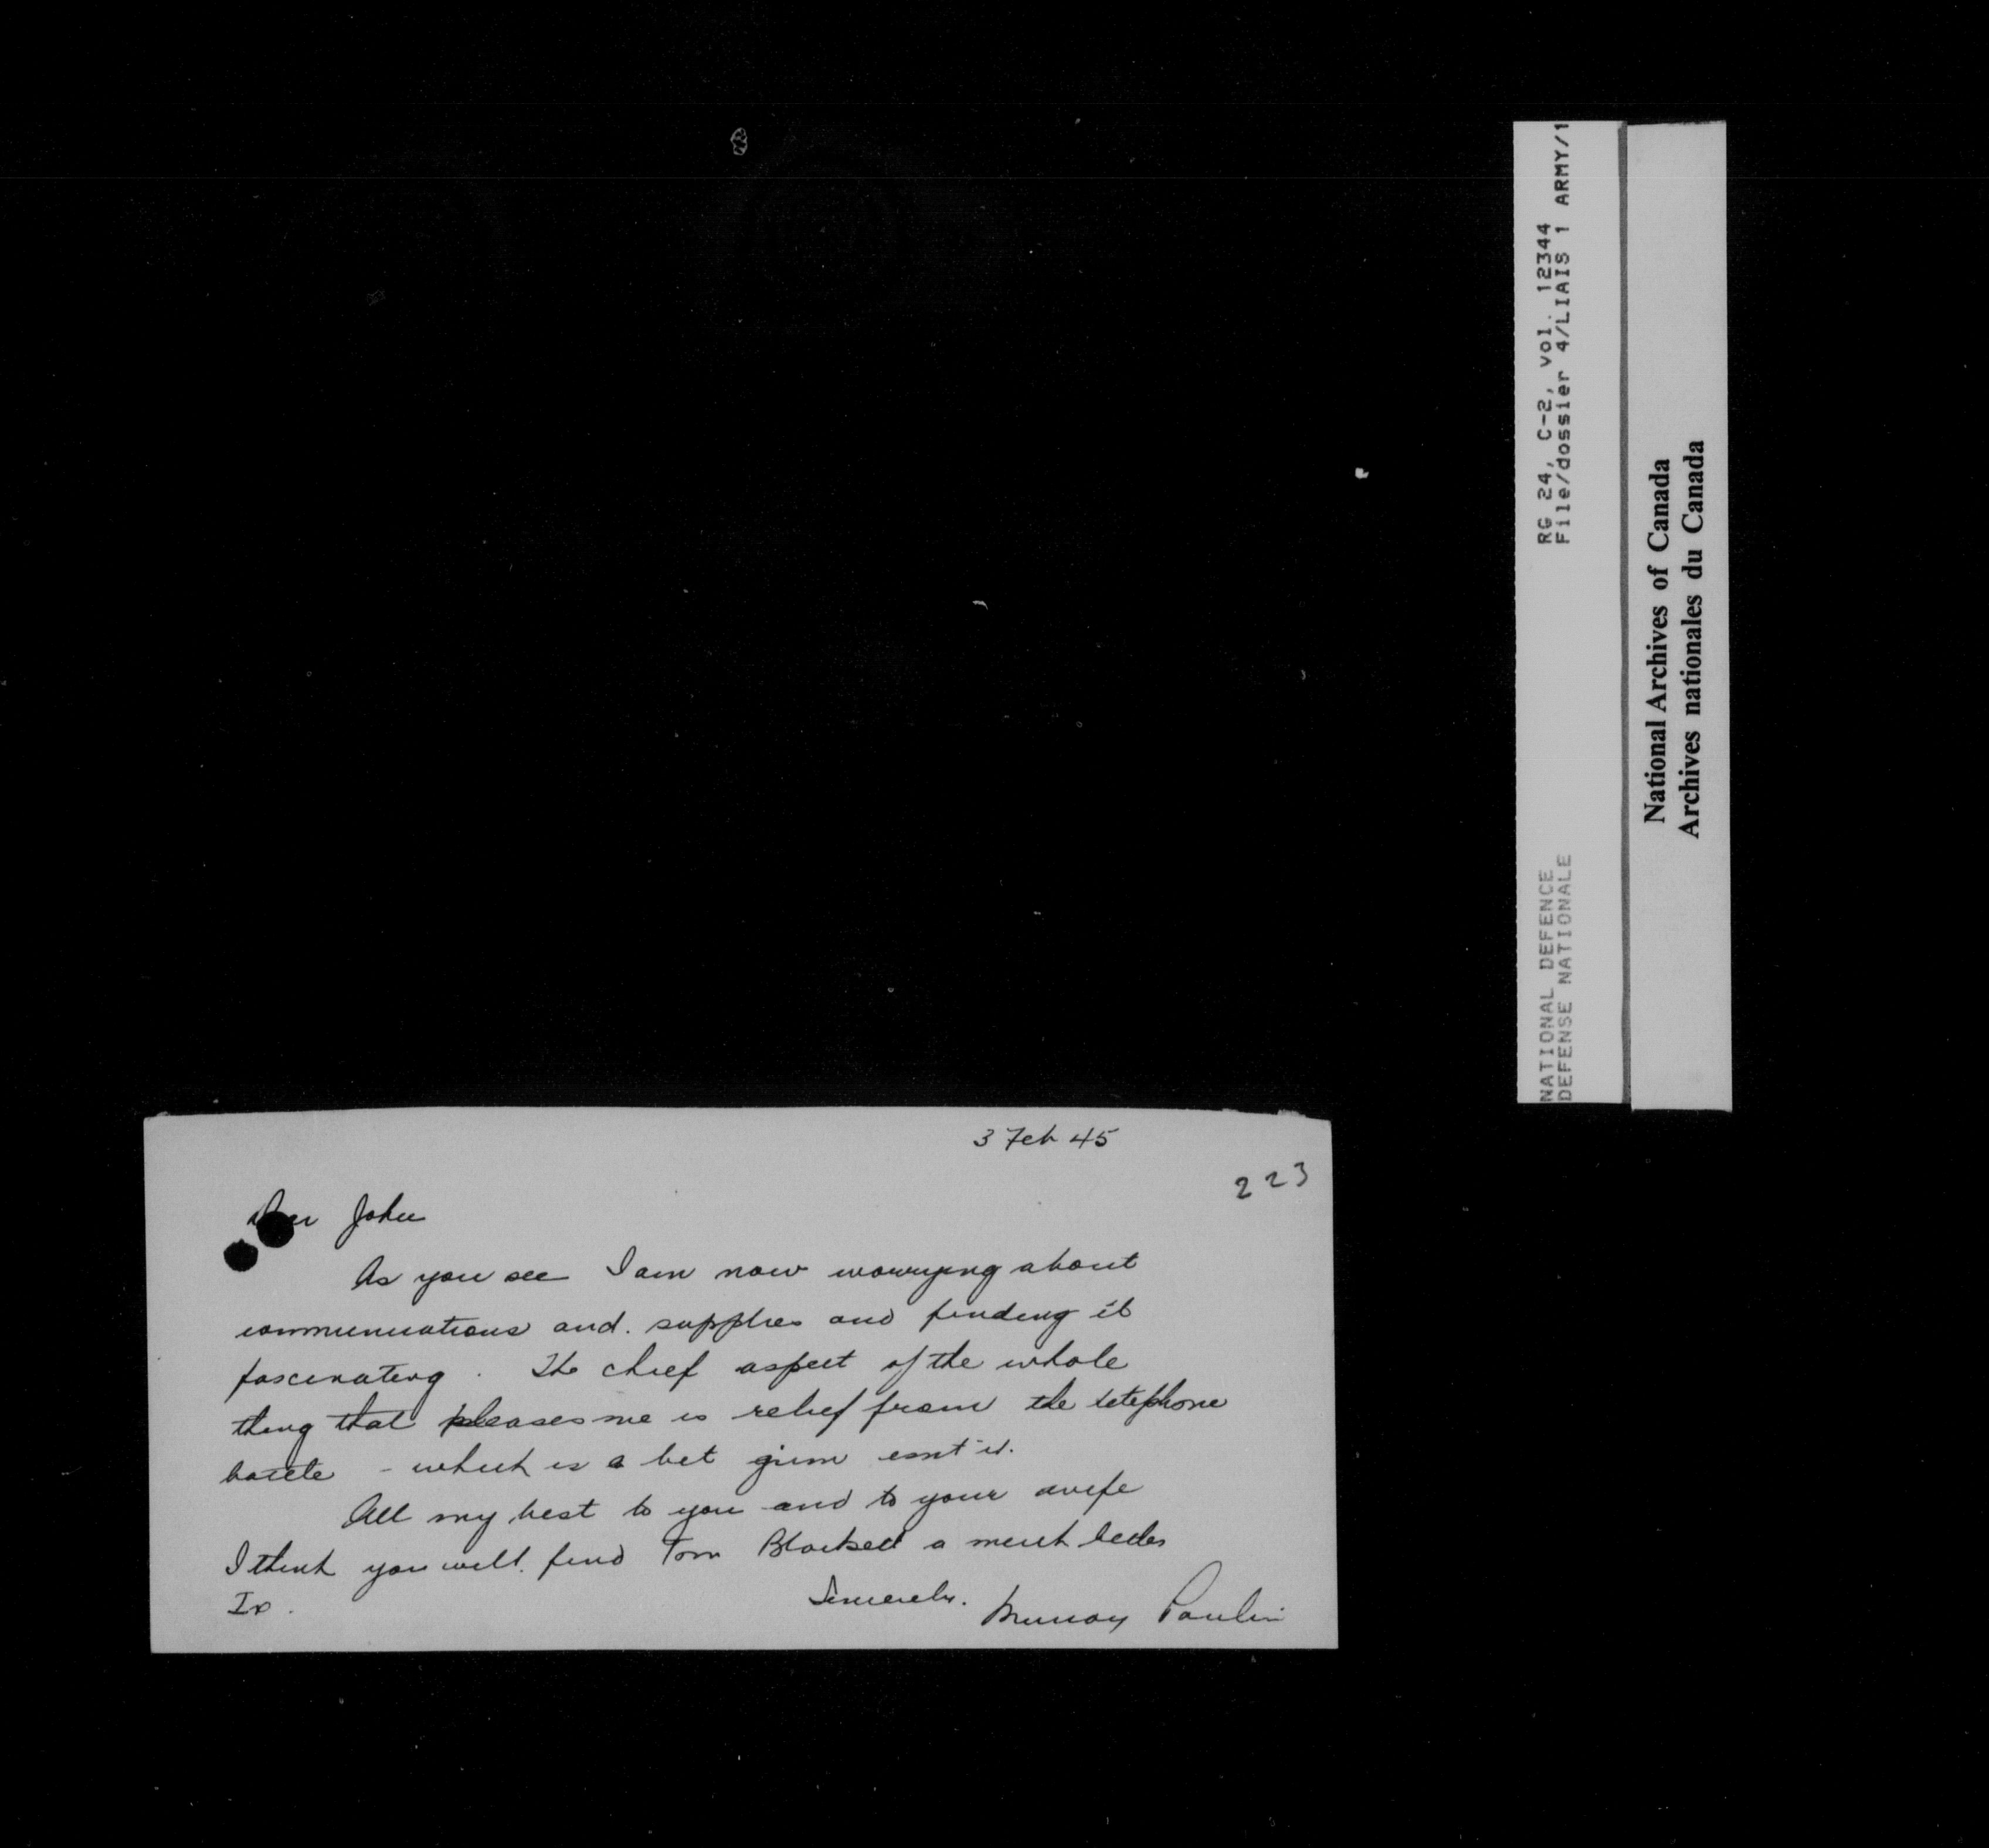 3 Feb 45
223
Dear John
As you see I am now worrying about
communications and. supplies and finding it
fascinating. The chief aspect of the whole
thing that pleases me is relief from the telephone
battle - which is a bit grim isnt it.
All my best to you and to your wife
I think you will find Tom a much better
Sincerely.
Murray Paulin
RG 24, C-2, vol. 12344
File/dossier 4/LIAIS 1 ARMY/1
NATIONAL DEFENCE
DEFENSE NATIONALE
National Archives of Canada
Archives nationales du Canada